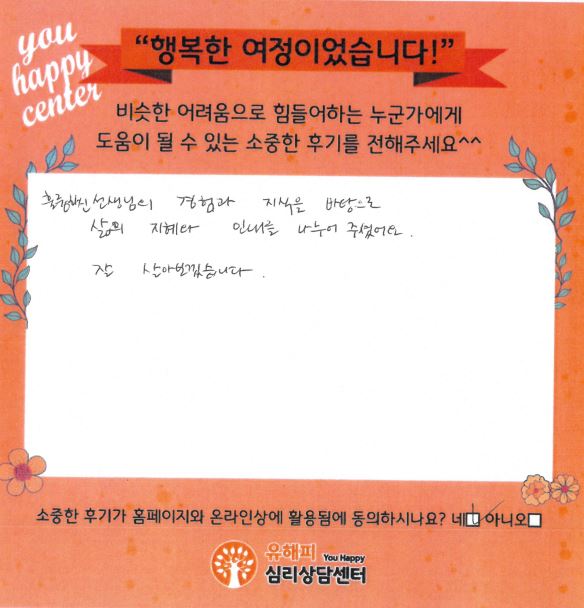 you
happy
center
“행복한 여정이었습니다!”
비슷한 어려움으로 힘들어하는 누군가에게
도움이 될 수 있는 소중한 후기를 전해주세요^^
선생님의 경험과 지식을 바탕으로
삶의 지혜와 인내를 나누어 주셨어요.
잘 살아보겠습니다.
소중한 후기가 홈페이지와 온라인상에 활용됨에 동의하시나요? 네□ 아니오□
유해피 You Happy
심리상담센터